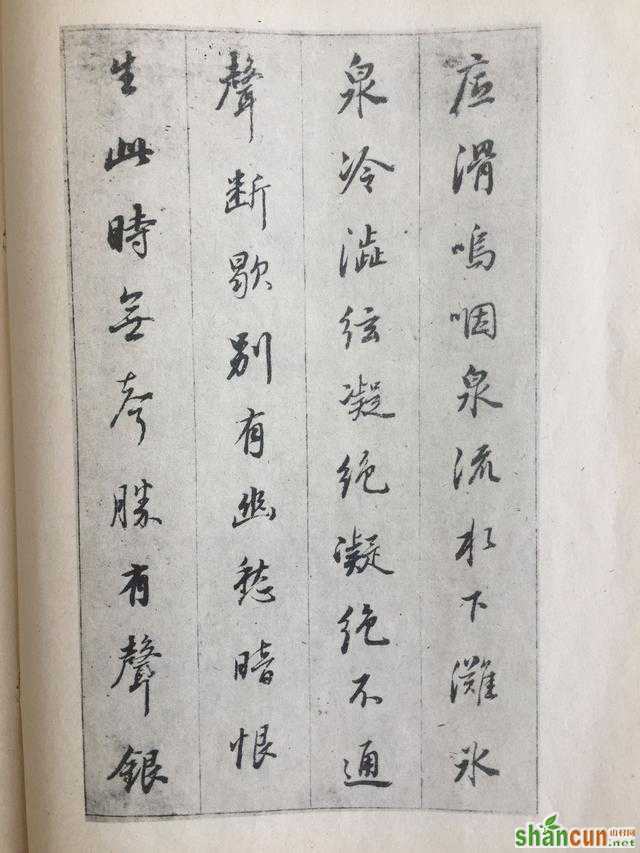 底滑嗚咽泉流水下灘水
泉冷澁弦凝绝凝绝不通
聲断歇别有幽愁暗恨
生此時無聲勝有聲銀
shancun
山村网
.net